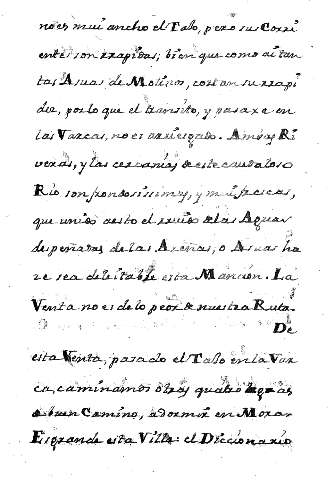 no es mui ancho el Tajo, pero sus Corri
entes son rrapidas; bien que como ai tan
tas Azuas de Molinos, cortan su rrapi
dez, por lo que el transito, y pasaxe en
las Varcas, no es arriesgado. Amvas Ri
veras, y las cercanias de este caudaloso
Rio son frondosissimas, y mui frescas,
que unido a esto el rruido de las Aguas
despeñadas de las Azeñas, o Azuas ha
ze sea deleitable esta Mancion. La
Venta no es de lo peor de nuestra Ruta.
De
esta Venta, pasado el Tajo en la Var
ca, caminamos otras quatro leguas
de buen Camino, a dormir en Mora.
Es grande esta Villa: el Diccionario